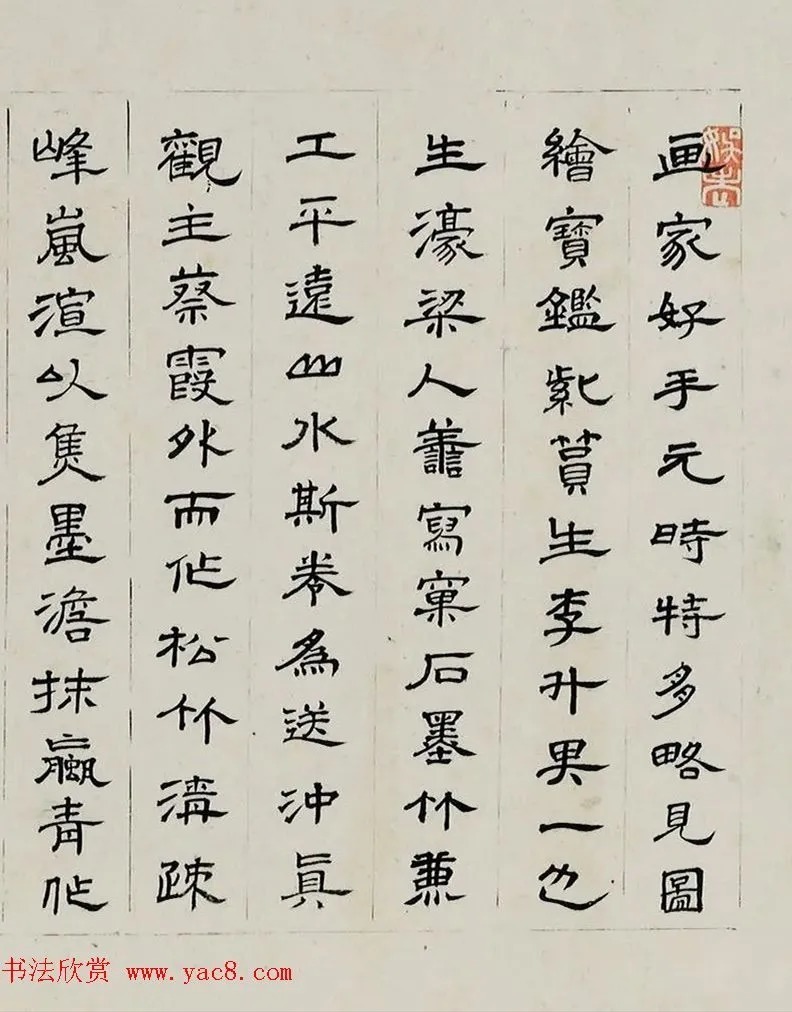 画家好手元時特多略見圖
繪寶鑑紫篔生李升其一也
生濠梁人善寫窠石墨竹兼
工平遠山水斯卷為送沖真
觀主蔡霞外而作松竹清疎
峰嵐渲以焦墨澹抹蠃青作
书法欣赏 www.yac8.com